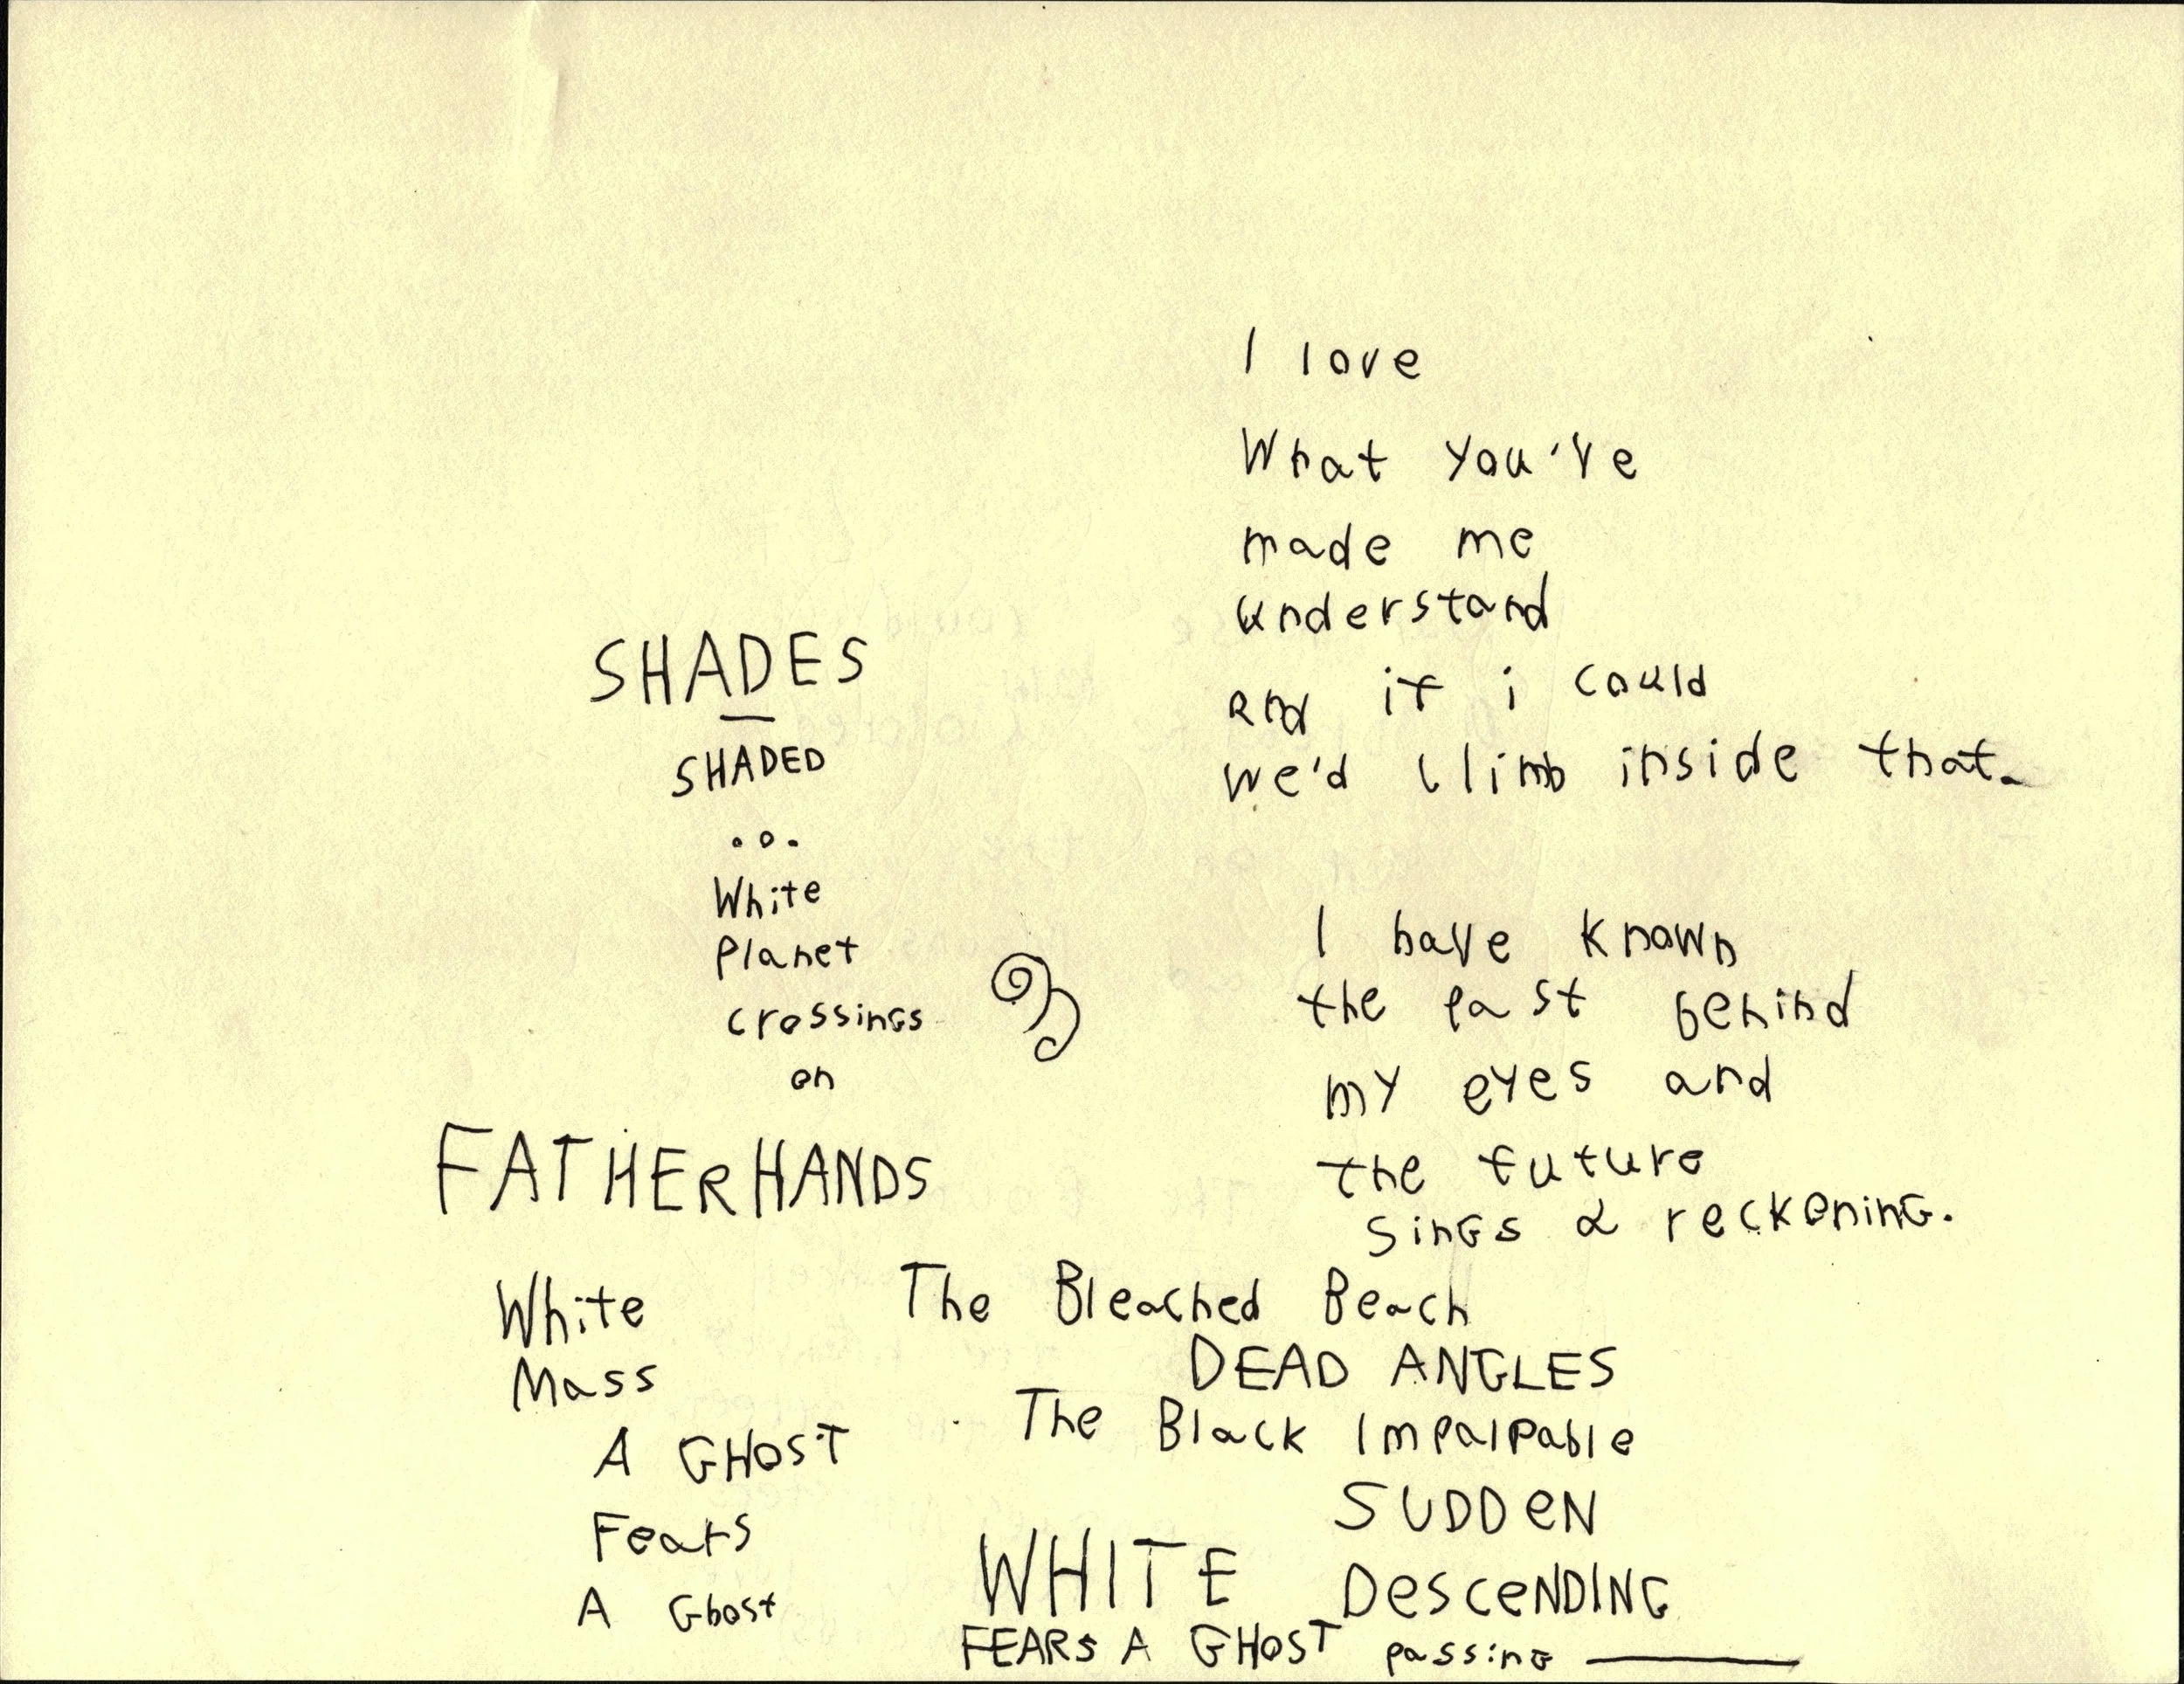 I love
What you've
made me
understand
and if i could
we'd climb inside that.
I have known
the past behind
my eyes and
the future
sings a reckoning.
SHADES
SHADED
...
White
Planet
crossings
on
FATHERHANDS
White
Mass
A GHOST
Fears
A Ghost
The Bleached Beach
DEAD ANGLES
The Black Impalpable
SUDDEN
WHITE DESCENDING
FEARS A GHOST passing